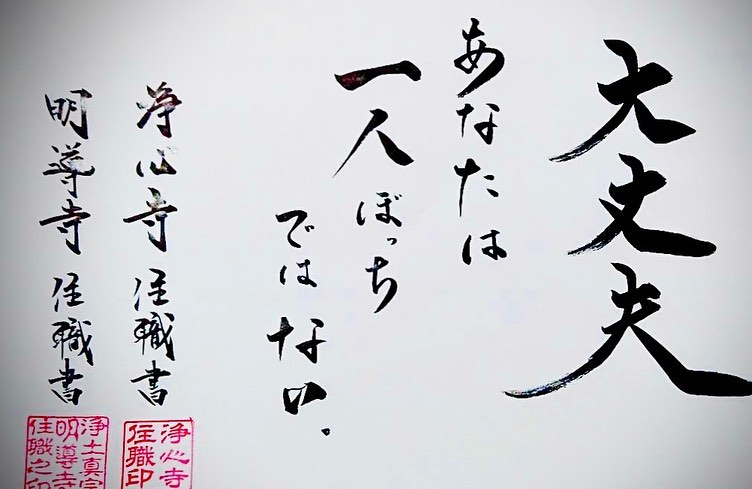 大丈夫
あなたは
一人ぼっち
ではない。
浄心寺 住職書
明導寺 住職書
浄心寺
住職印
浄土真宗
明導寺
住職之印